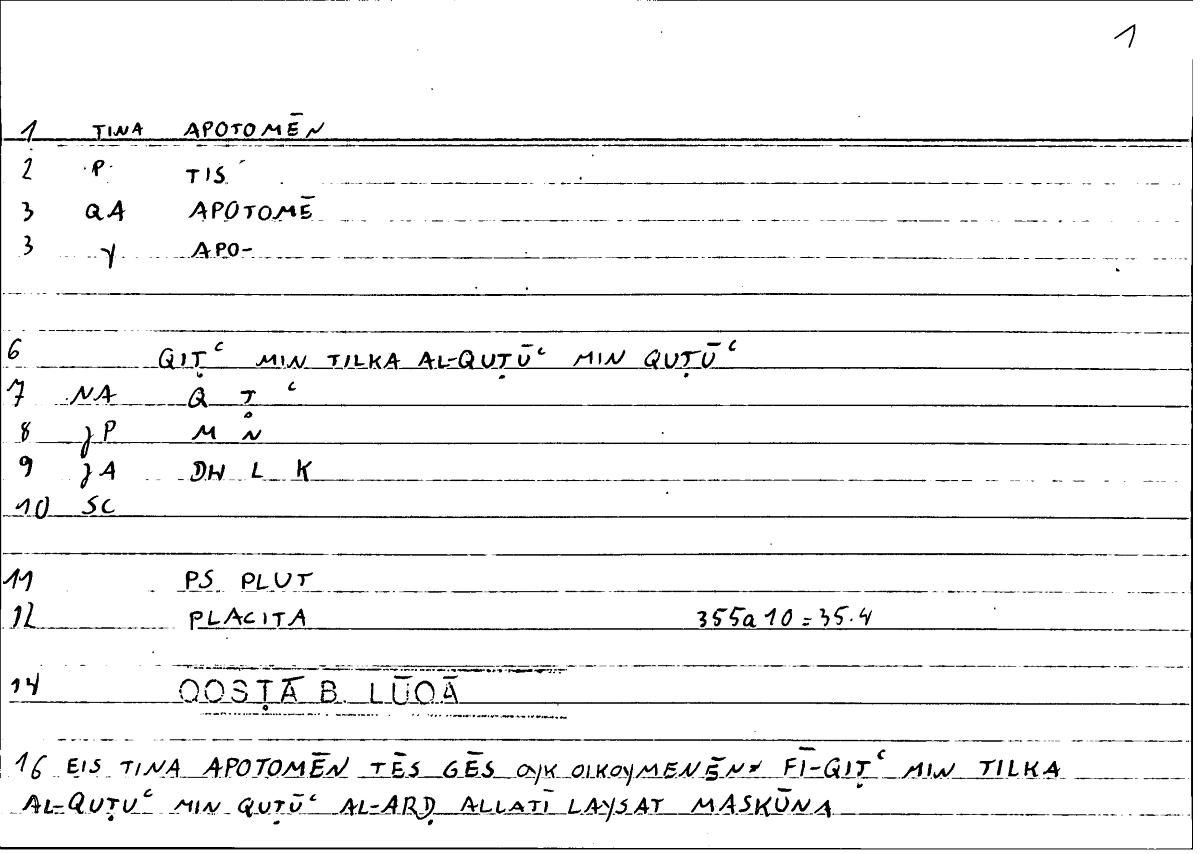 1
1 TINA APOTOMĒN
2 P TIS
3 QA APOTOMĒ
3 γ APO-
6 QIṬʿ MIN TILKA AL-QUṬŪʿ MIN QUṬŪʿ
7 NA Q Ṭ ʿ
8 JP M N̊
9 JA DH L K
10 SC
11 PS PLUT
12 PLACITA 355a10=35.4
14 QOSṬĀ B. LŪQĀ
16 EIS TINA APOTOMĒN TĒS GĒS OYK OIKOYMENĒN= FĪ-QIṬʿ MIN TILKA
AL-QUṬUʿ MIN QUṬŪʿ AL-ARḌ ALLATĪ LAYSAT MASKŪNA